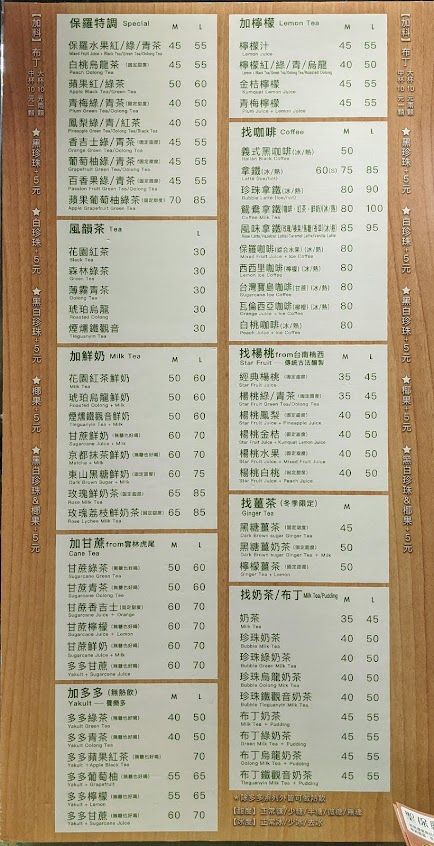 保羅特調 Special M L
保羅水果紅/綠/青茶 45 55
白桃烏龍茶 (固定甜度) 45 55
Peach Oolong Tea
蘋果紅/綠茶 50 60
Apple Black Tea/Green Tea
青梅綠/青茶 (固定甜度) 40 50
Plum Green Tea/Oolong Tea
鳳梨綠/青/紅茶 40 50
Pineapple Green Tea/Oolong Tea/Black Tea
香吉士綠/青茶 (固定甜度) 45 55
Orange Green Tea/Oolong Tea
葡萄柚綠/青茶 (固定甜度) 45 55
Grapefruit Green Tea/Oolong Tea
百香果綠/青茶 (固定甜度) 45 55
Passion Fruit Green Tea/Oolong Tea
蘋果葡萄柚綠茶 (固定甜度) 70 85
Apple Grapefruit Green Tea
風韻茶 Tea L
花園紅茶 30
Black Tea
森林綠茶 30
Green Tea
薄霧青茶 30
Oolong Tea
琥珀烏龍 30
Roasted Oolong
煙燻鐵觀音 30
Tieguanyin Tea
加鮮奶 Milk Tea M L
花園紅茶鮮奶 50 60
Milk Tea
琥珀烏龍鮮奶 50 60
Roasted Oolong + Milk
煙燻鐵觀音鮮奶 50 60
Tieguanyin Tea + Milk
甘蔗鮮奶 (無糖也好喝) 60 70
Sugarcane Juice + Milk
京都抹茶鮮奶 (無糖也好喝) 60 70
Matcha + Milk
東山黑糖鮮奶 (固定甜度) 60 75
Dark Brown Sugar + Milk
玫瑰鮮奶茶 (固定甜度) 65 85
Rose Milk Tea
玫瑰荔枝鮮奶茶 (固定甜度) 65 85
Rose Lychee Milk Tea
加甘蔗 from雲林虎尾 M L
Cane Tea
甘蔗綠茶 (無糖也好喝) 50 60
Sugarcane Green Tea
甘蔗青茶 (無糖也好喝) 50 60
Sugarcane Oolong Tea
甘蔗香吉士 (固定甜度) 60 70
Sugarcane Juice + Orange
甘蔗檸檬 (無糖也好喝) 60 70
Sugarcane Juice + Lemon
甘蔗鮮奶 (無糖也好喝) 60 70
Sugarcane Juice + Milk
多多甘蔗 (無糖也好喝) 60 70
Yakult + Sugarcane Juice
加多多 (無熱飲) M L
Yakult — 養樂多
多多綠茶 (無糖也好喝) 40 50
Yakult Green Tea
多多青茶 (無糖也好喝) 40 50
Yakult Oolong Tea
多多蘋果紅茶 (無糖也好喝) 70
Yakult + Apple Black Tea
多多葡萄柚 (無糖也好喝) 55 65
Yakult + Grapefruit
多多檸檬 (無糖也好喝) 55 65
Yakult + Lemon
多多甘蔗 (無糖也好喝) 60 70
Yakult + Sugarcane Juice
加檸檬 Lemon Tea M L
檸檬汁 45 55
Lemon Juice
檸檬紅/綠/青/烏龍 40 50
金桔檸檬 45 55
Kumquat Lemon Juice
青梅檸檬 45 55
Plum Juice + Lemon Juice
找咖啡 Coffee M L
義式黑咖啡 (冰/熱) 50
Italian Black Coffee
拿鐵 (冰/熱) 60(S) 75 85
珍珠拿鐵 (冰/熱) 80 90
鴛鴦拿鐵 80 100
Coffee Milk Tea
風味拿鐵 85 95
保羅咖啡 (綜合水果) (冰/熱) 80
Mixed Fruit Juice + Ice Coffee
西西里咖啡 (檸檬) (冰/熱) 80
Lemon Ice Coffee
台灣寶島咖啡 (甘蔗) (冰/熱) 80
Sugarcane Ice Coffee
瓦倫西亞咖啡 (柳橙) (冰/熱) 80
Orange Juice + Ice Coffee
白桃咖啡 (冰/熱) 80
Peach Juice + Ice Coffee
找楊桃 from台南楠西 M L
Star Fruit — 傳統古法釀製
經典楊桃 (固定甜度) 35 45
Star Fruit Juice
楊桃綠/青茶 (固定甜度) 35 45
Star Fruit Green Tea/Oolong Tea
楊桃鳳梨 (固定甜度) 40 50
Star Fruit Juice + Pineapple Juice
楊桃金桔 (固定甜度) 40 50
Star Fruit Juice + Kumquat Lemon Juice
楊桃水果 (固定甜度) 40 50
Star Fruit Juice + Mixed Fruit Juice
楊桃白桃 (固定甜度) 40 50
Star Fruit Juice + Peach Juice
找薑茶 (冬季限定) M
Ginger Tea
黑糖薑茶 (固定甜度) 45
Dark Brown sugar Ginger Tea
黑糖薑奶茶 (固定甜度) 50
Dark Brown sugar Ginger Tea + Milk
檸檬薑茶 (固定甜度) 50
Ginger Tea + Lemon
找奶茶/布丁 Milk Tea/Pudding M L
奶茶 35 45
Milk Tea
珍珠奶茶 40 50
Bubble Milk Tea
珍珠綠奶茶 40 50
Bubble Green Milk Tea
珍珠烏龍奶茶 40 50
Bubble Oolong Milk Tea
珍珠鐵觀音奶茶 40 50
Bubble Tieguanyin Milk Tea
布丁奶茶 45 55
Milk Tea + Pudding
布丁綠奶茶 45 55
Green Milk Tea + Pudding
布丁烏龍奶茶 45 55
Oolong Milk Tea + Pudding
布丁鐵觀音奶茶 45 55
Tieguanyin Milk Tea + Pudding
*除多多系列外皆可做熱飲
【甜度】正常糖/少糖/半糖/微糖/無糖
【冰度】正常冰/少冰/去冰
【加料】布丁 大杯10元/顆 中杯10元/顆 ★黑珍珠+5元 ★白珍珠+5元 ★黑白珍珠+5元 ★椰果+5元 ★黑白珍珠&椰果+5元
【加料】布丁 大杯10元/顆 中杯10元/顆 ★黑珍珠+5元 ★白珍珠+5元 ★黑白珍珠+5元 ★椰果+5元 ★黑白珍珠&椰果+5元